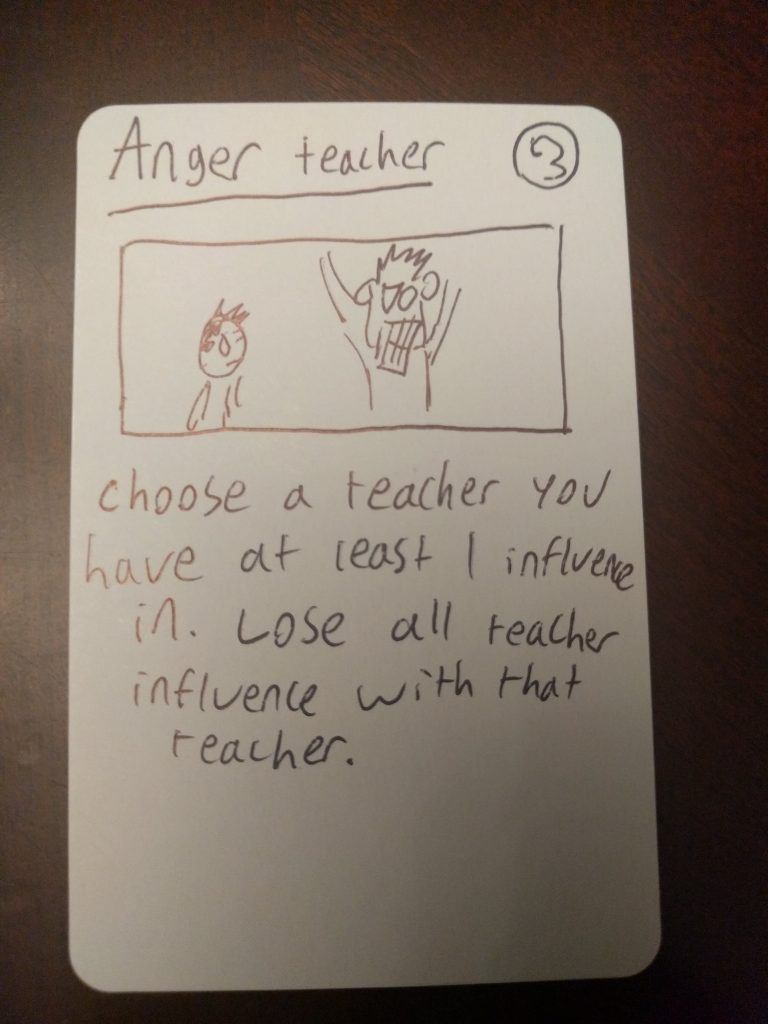 Anger teacher 3
choose a teacher you
have at least 1 influence
in. Lose all teacher
influence with that
teacher.